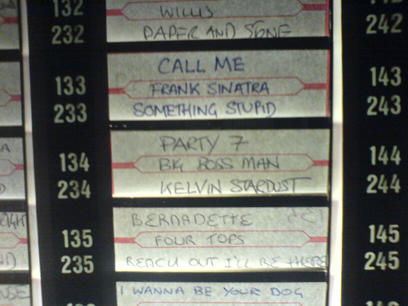 132
WILLIS
142
232
PAPER AND STONE
242
CALL ME
133
FRANK SINATRA
143
233
SOMETHING STUPID
243
PARTY 7
134
BIG BOSS MAN
144
234
KELVIN STARDUST
244
BERNADETTE
135
FOUR TOPS
145
235
REACH OUT I'LL BE THERE
245
I WANNA BE YOUR DOG